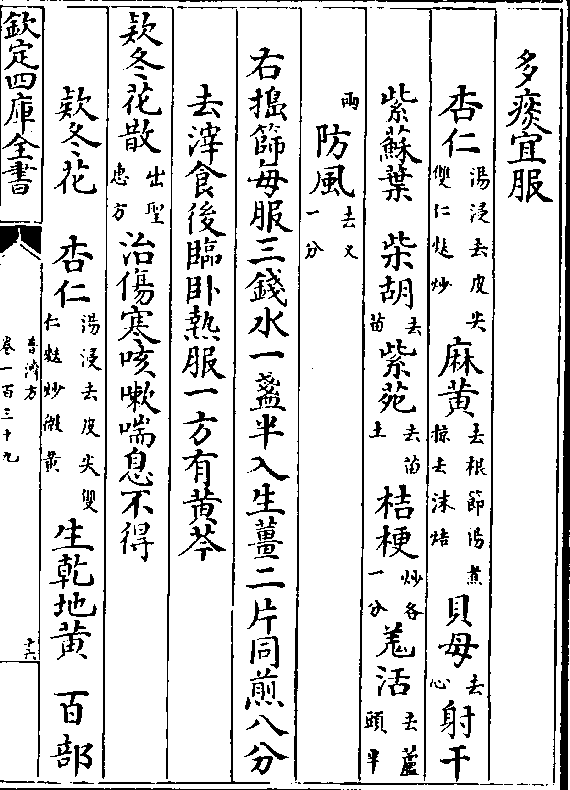 多痰宜服
杏仁湯浸去皮尖雙仁麩炒 麻黄去根節湯煮掠去沫焙 貝母去心 射干
紫蘇葉 柴胡去苗 紫苑去苗土 桔梗炒各一分 羗活去蘆頭半
兩 防風去叉一分
右搗篩每服三錢水一盞半入生薑二片同煎八分
去滓食後臨卧熱服一方有黄芩
欵冬花散出聖惠方 治傷寒咳嗽喘息不得
欵冬花 杏仁湯浸去皮尖雙仁麩炒微黄 生乾地黄 百部
欽定四庫全書
普濟方
卷一百三十九
十六